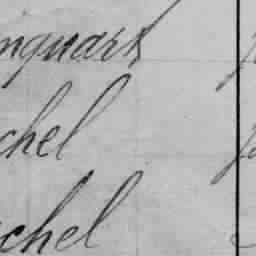 nquart
chel
chel